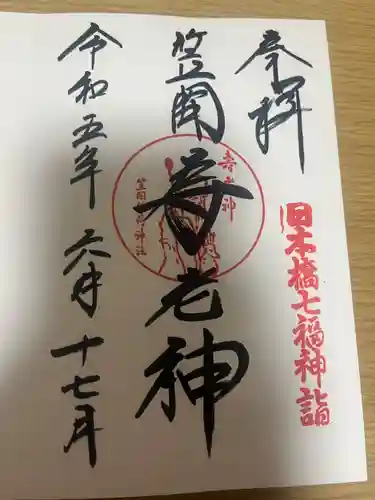 奉拝
旧日本橋七福神詣
笠間寿老神
寿老神
笠間稲荷神社
令和五年六月十七日